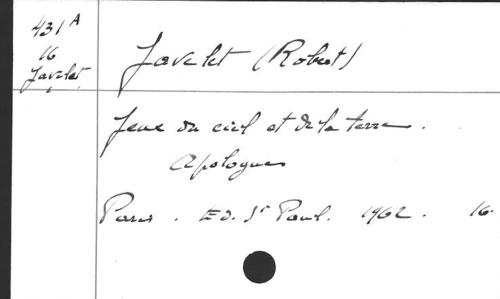 431 A
16
Javelet
Javelet (Robert)
Jeux du ciel et de la terre.
Apologues
Paris. Ed. St Paul. 1962. 16